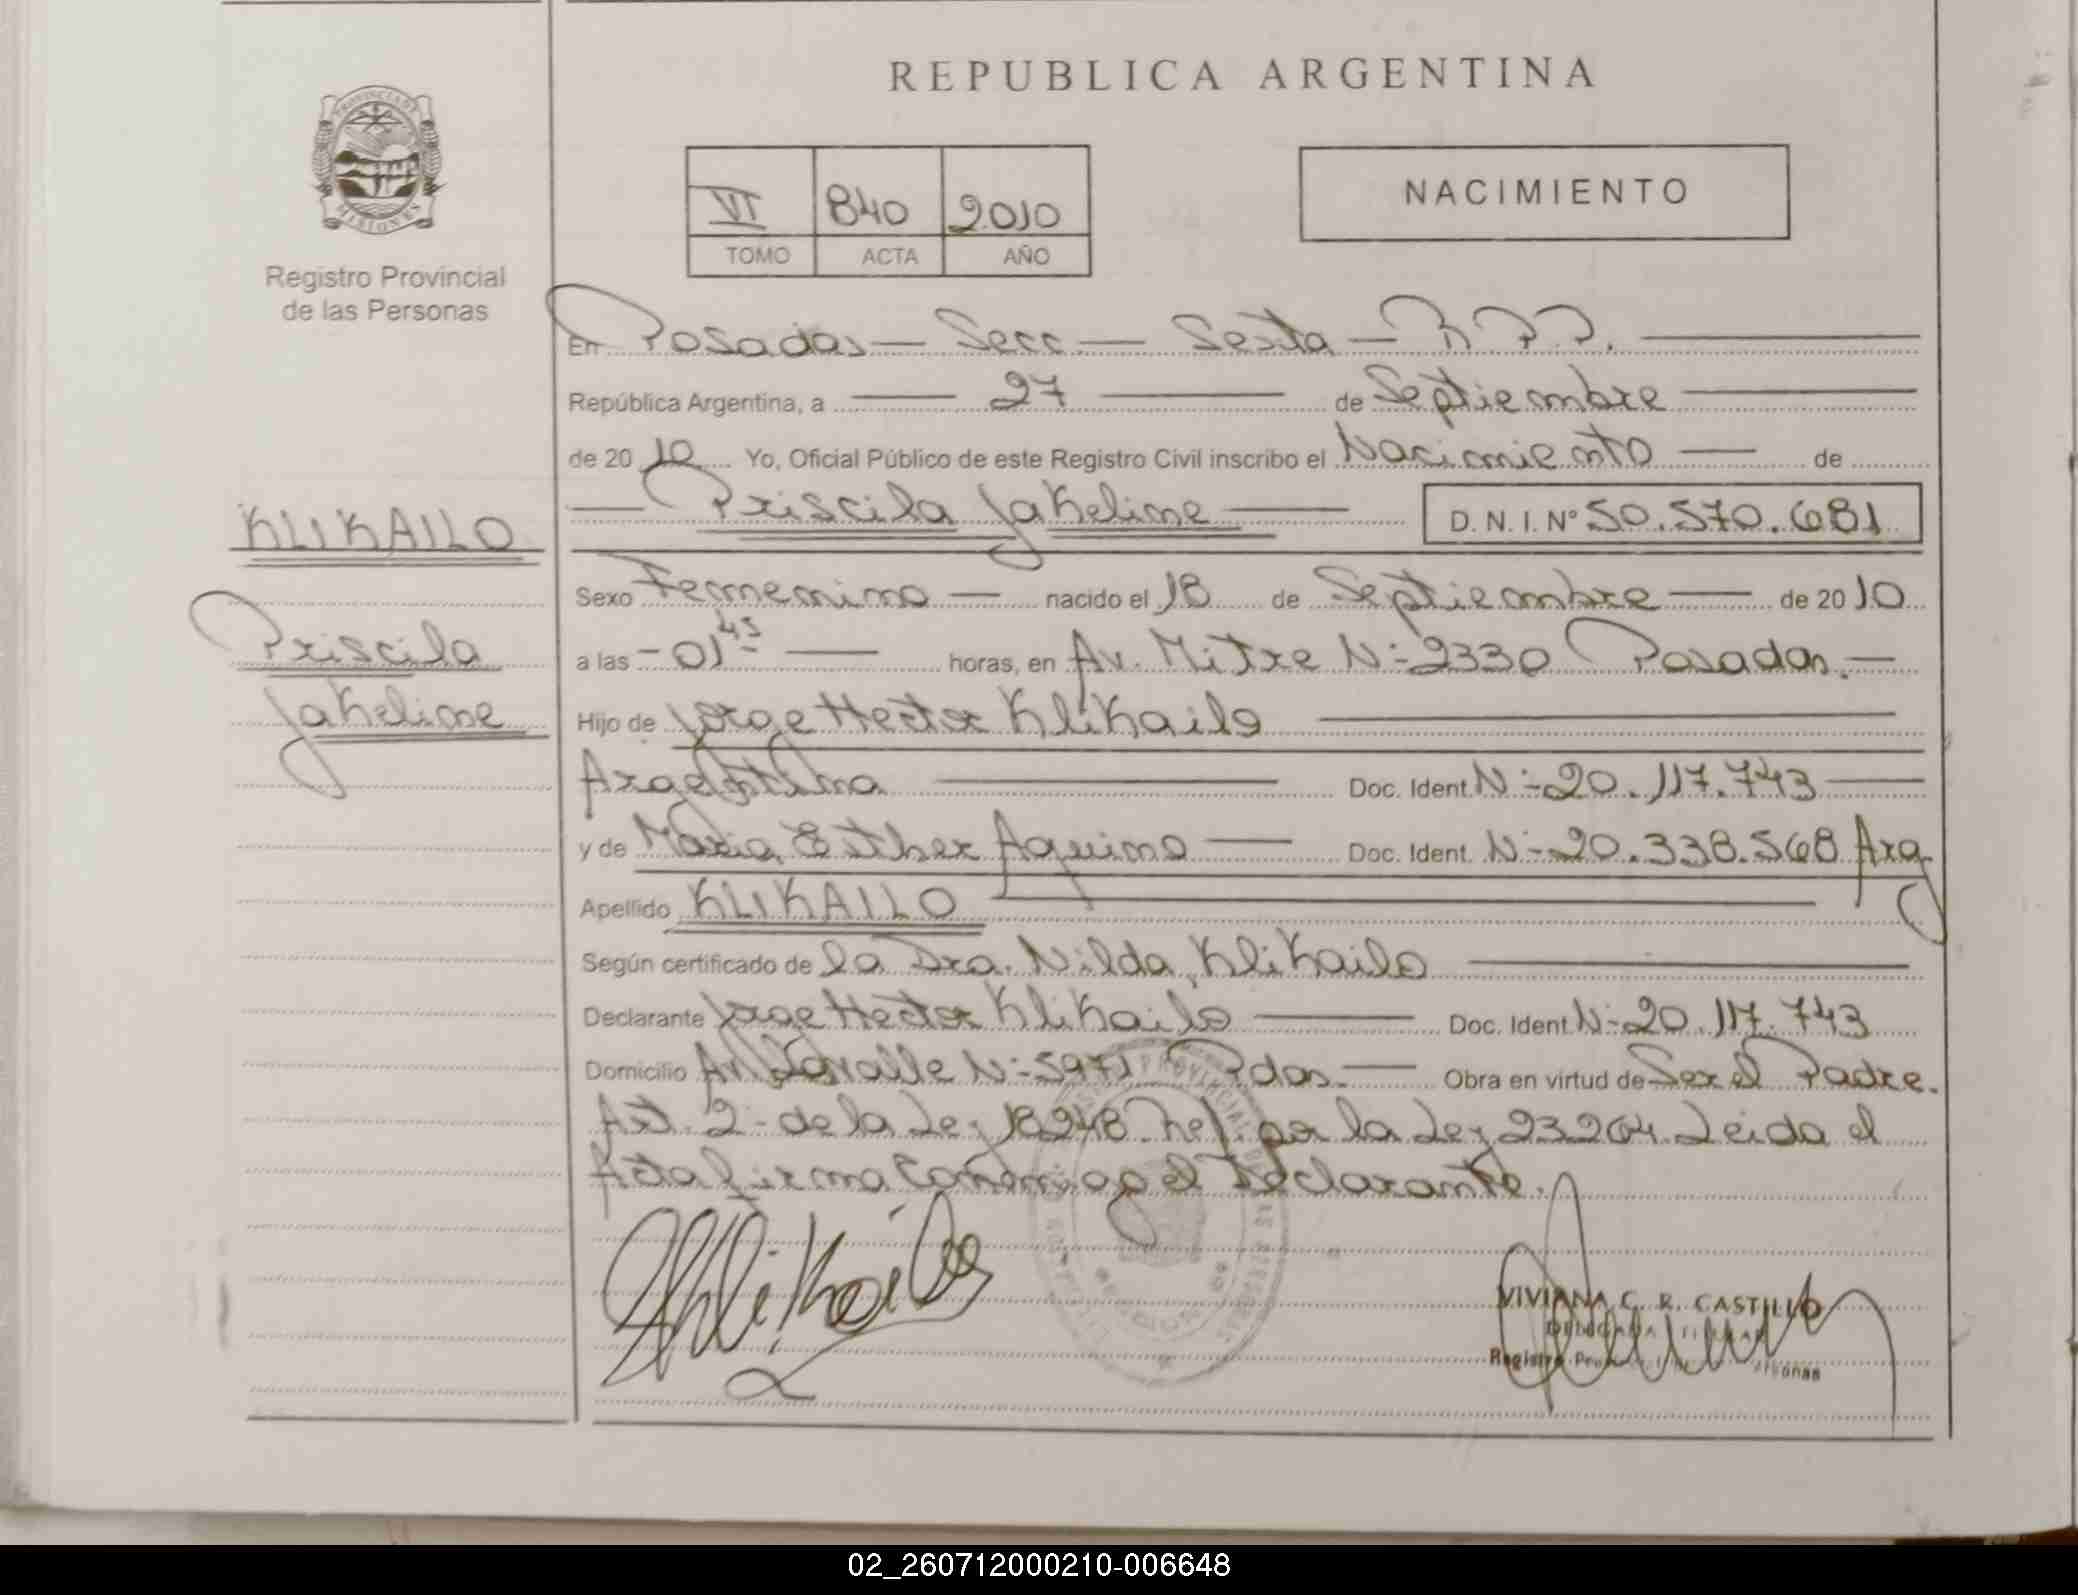 REPUBLICA ARGENTINA
PROVINCIA DE MISIONES
Registro Provincial
de las Personas
VI 840 2010
TOMO ACTA AÑO
NACIMIENTO
En Posadas — Secc — Sexta — R.P.P. —
República Argentina, a — 27 — de Septiembre —
de 2010 Yo, Oficial Público de este Registro Civil inscribo el Nacimiento — de
— Priscila Jakeline — D.N.I. Nº 50.570.681
KLIKAILO
Priscila
Jakeline
Sexo Femenino — nacido el 18 de Septiembre — de 2010
a las - 01 45 — horas, en Av. Mitre N:- 2330 Posadas. —
Hijo de Jorge Hector Klikailo —
Argentina — Doc. Ident N:- 20.117.743 —
y de Maria Esther Aquino — Doc. Ident. N:- 20.338.568 Arg
Apellido KLIKAILO —
Según certificado de la Dra. Nilda Klikailo —
Declarante Jorge Hector Klikailo — Doc. Ident N:- 20.117.743
Domicilio Av. Lavalle N:- 5971 Pdas. — Obra en virtud de Ser el Padre.
Art. 2- de la Ley 18248. Ref. por la Ley 23264. Leida el
Acta firma Conmigo el Declarante.
Klikailo
VIVIANA C. R. CASTILLO
DELEGADA TITULAR
Registro
02_260712000210-006648